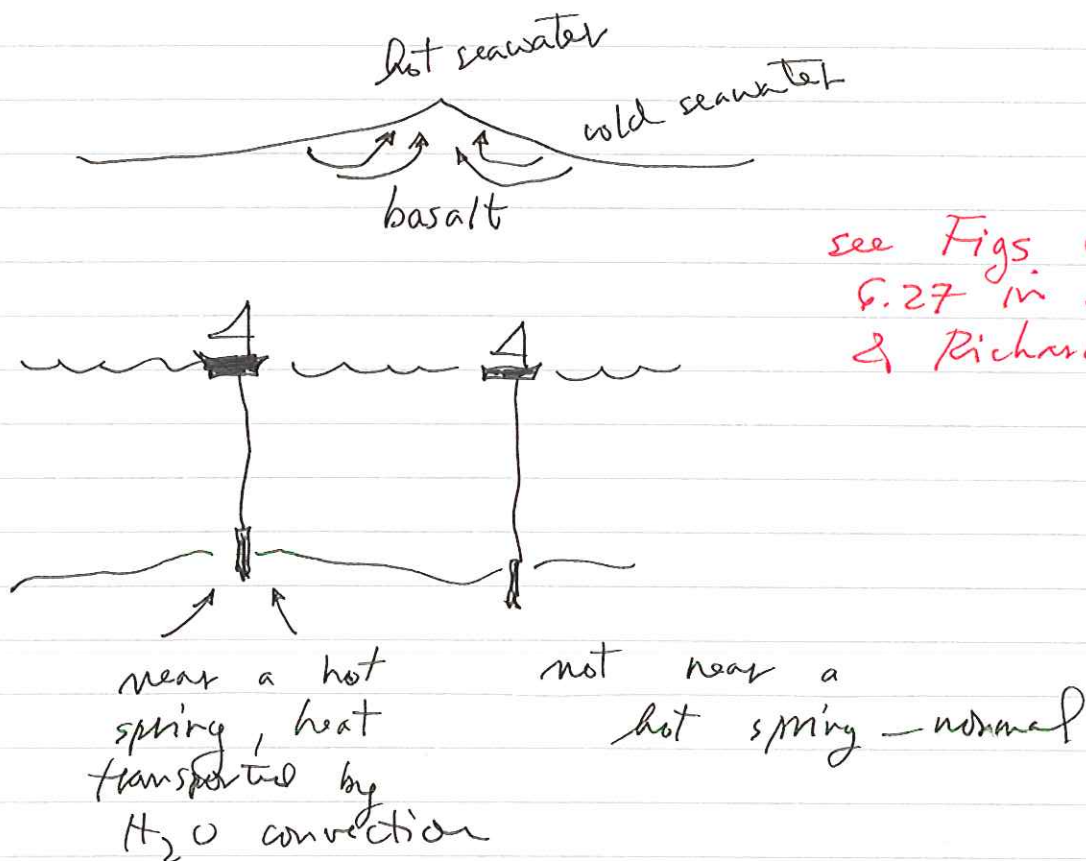 hot seawater
cold seawater
basalt
see Figs
6.27 in
& Richar
near a hot
spring, heat
transported by
H₂O convection
not near a
hot spring - normal